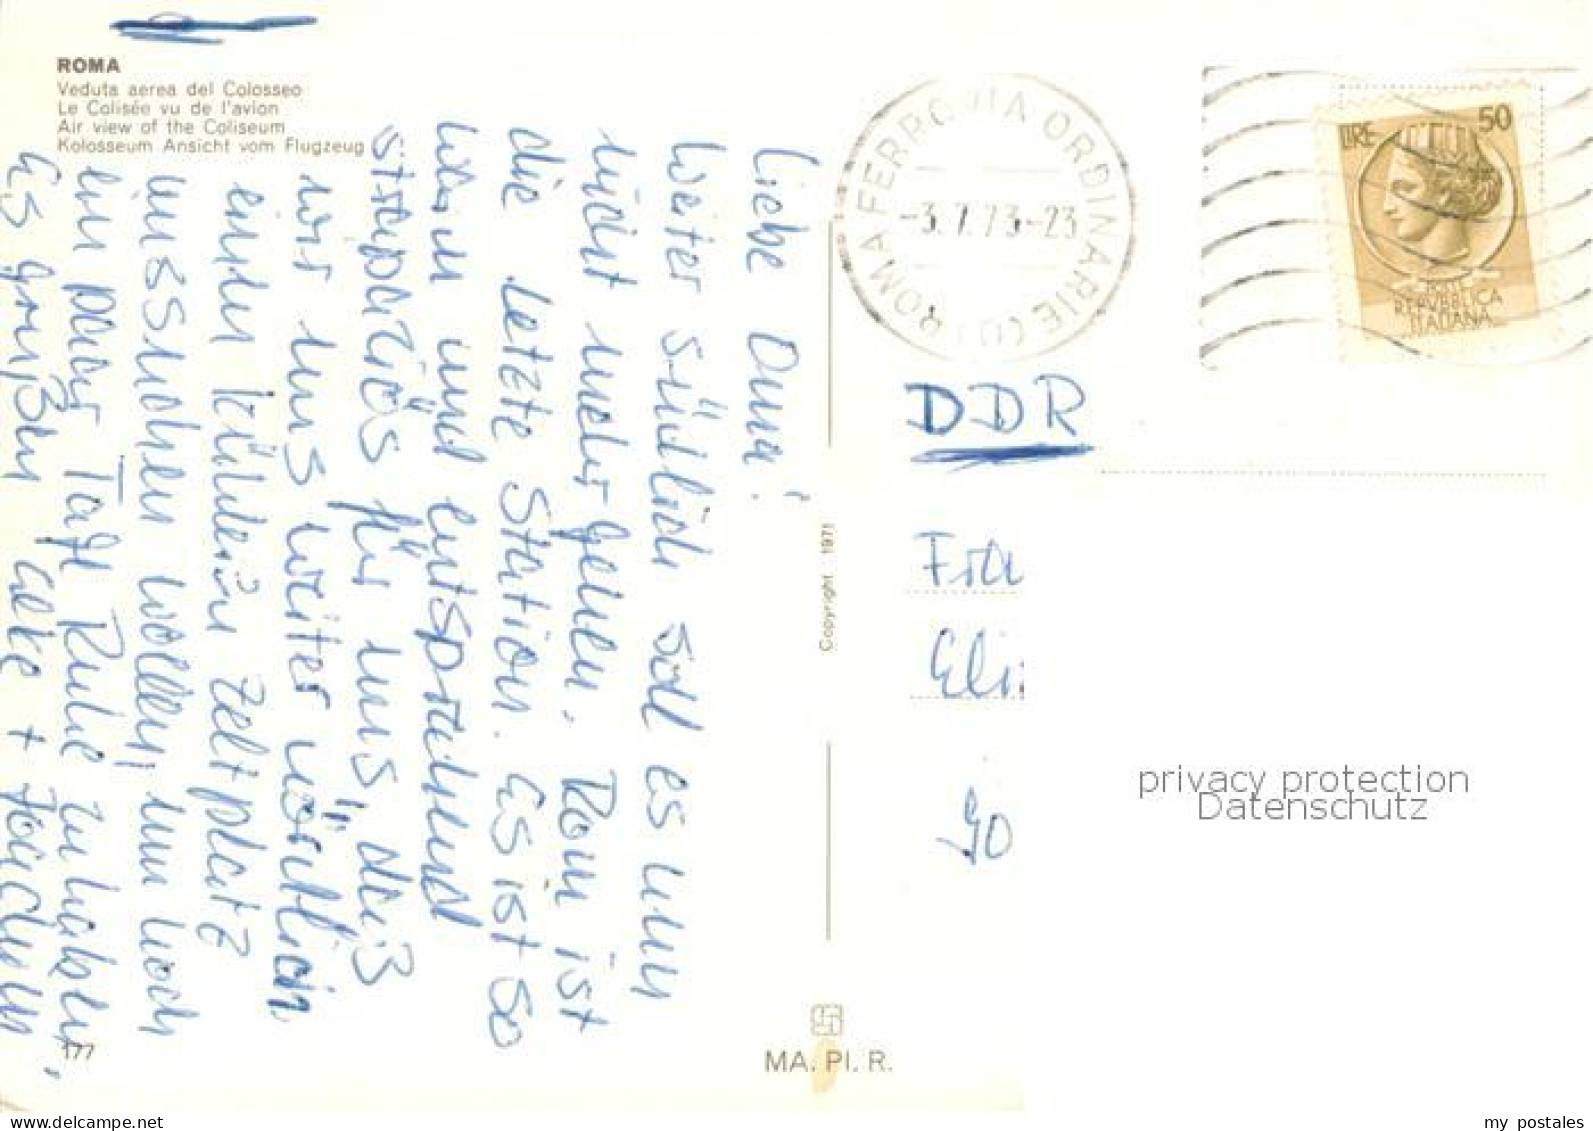 ROMA
Veduta aerea del Colosseo
Le Colisée vu de l'avion
Air view of the Coliseum
Kolosseum Ansicht vom Flugzeug
Liebe Oma!
Weiter südlich soll es nun
nicht mehr gehen. Rom ist
die letzte Station. Es ist so
warm und entsprechend
strapaziös für uns, daß
wir uns weiter nördlich
einen kühleren Zeltplatz
aussuchen wollen, um noch
ein paar Tage Ruhe zu haben.
Es grüßen + Joachim
177
Copyright 1971
MA. PI. R.
ROMA FERROVIA ORDINARIE (D)
-3.7.73-23
LIRE 50
POSTE
REPVBBLICA
ITALIANA
DDR
Frau
Eli
Go
privacy protection
Datenschutz
my_postales